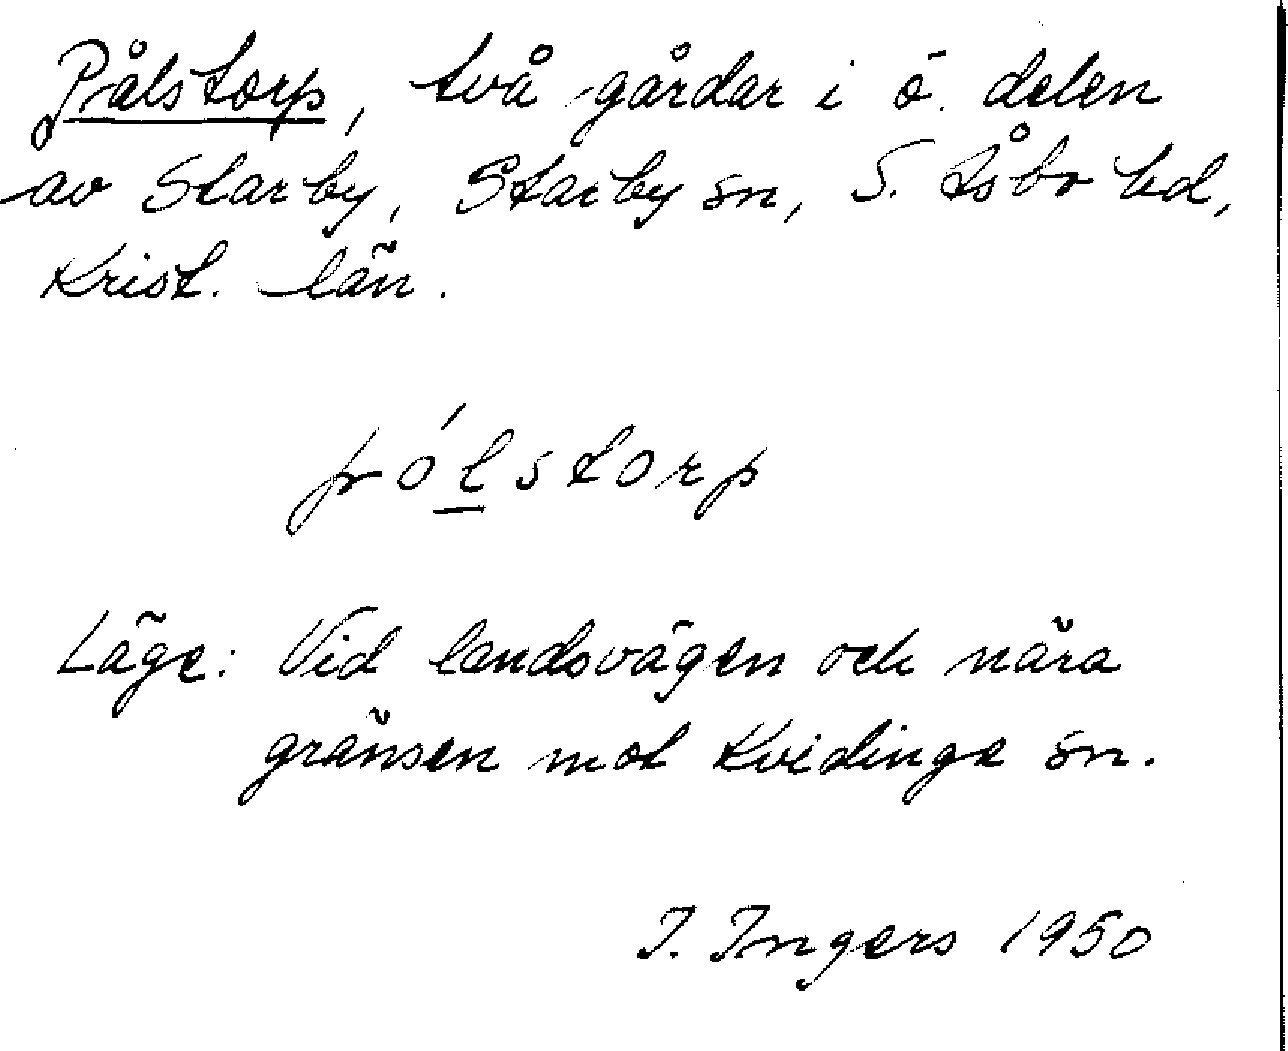 Pålstorp, två gårdar i ö. delen
av Starby, Starby sn, S. Åsbo hd,
Krist. län.
pólstorp
Läge: Vid landsvägen och nära
gränsen mot Kvidinge sn.
I. Ingers 1950